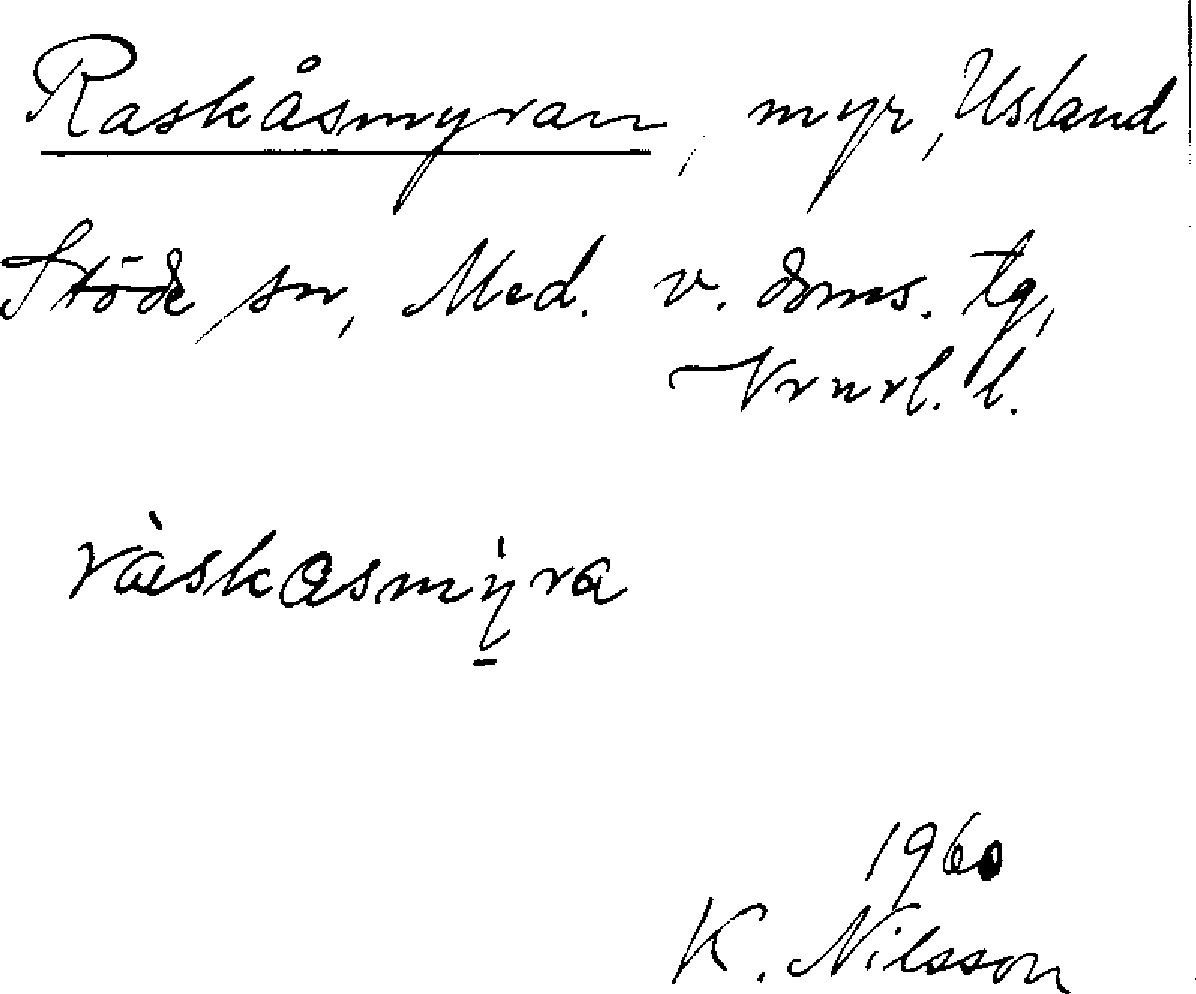 Raskåsmyran, myr, Usland
Stöde sn, Med. v. doms. tg,
Vrnrl. l.
ràskasmy̠ra
1960
K. Nilsson